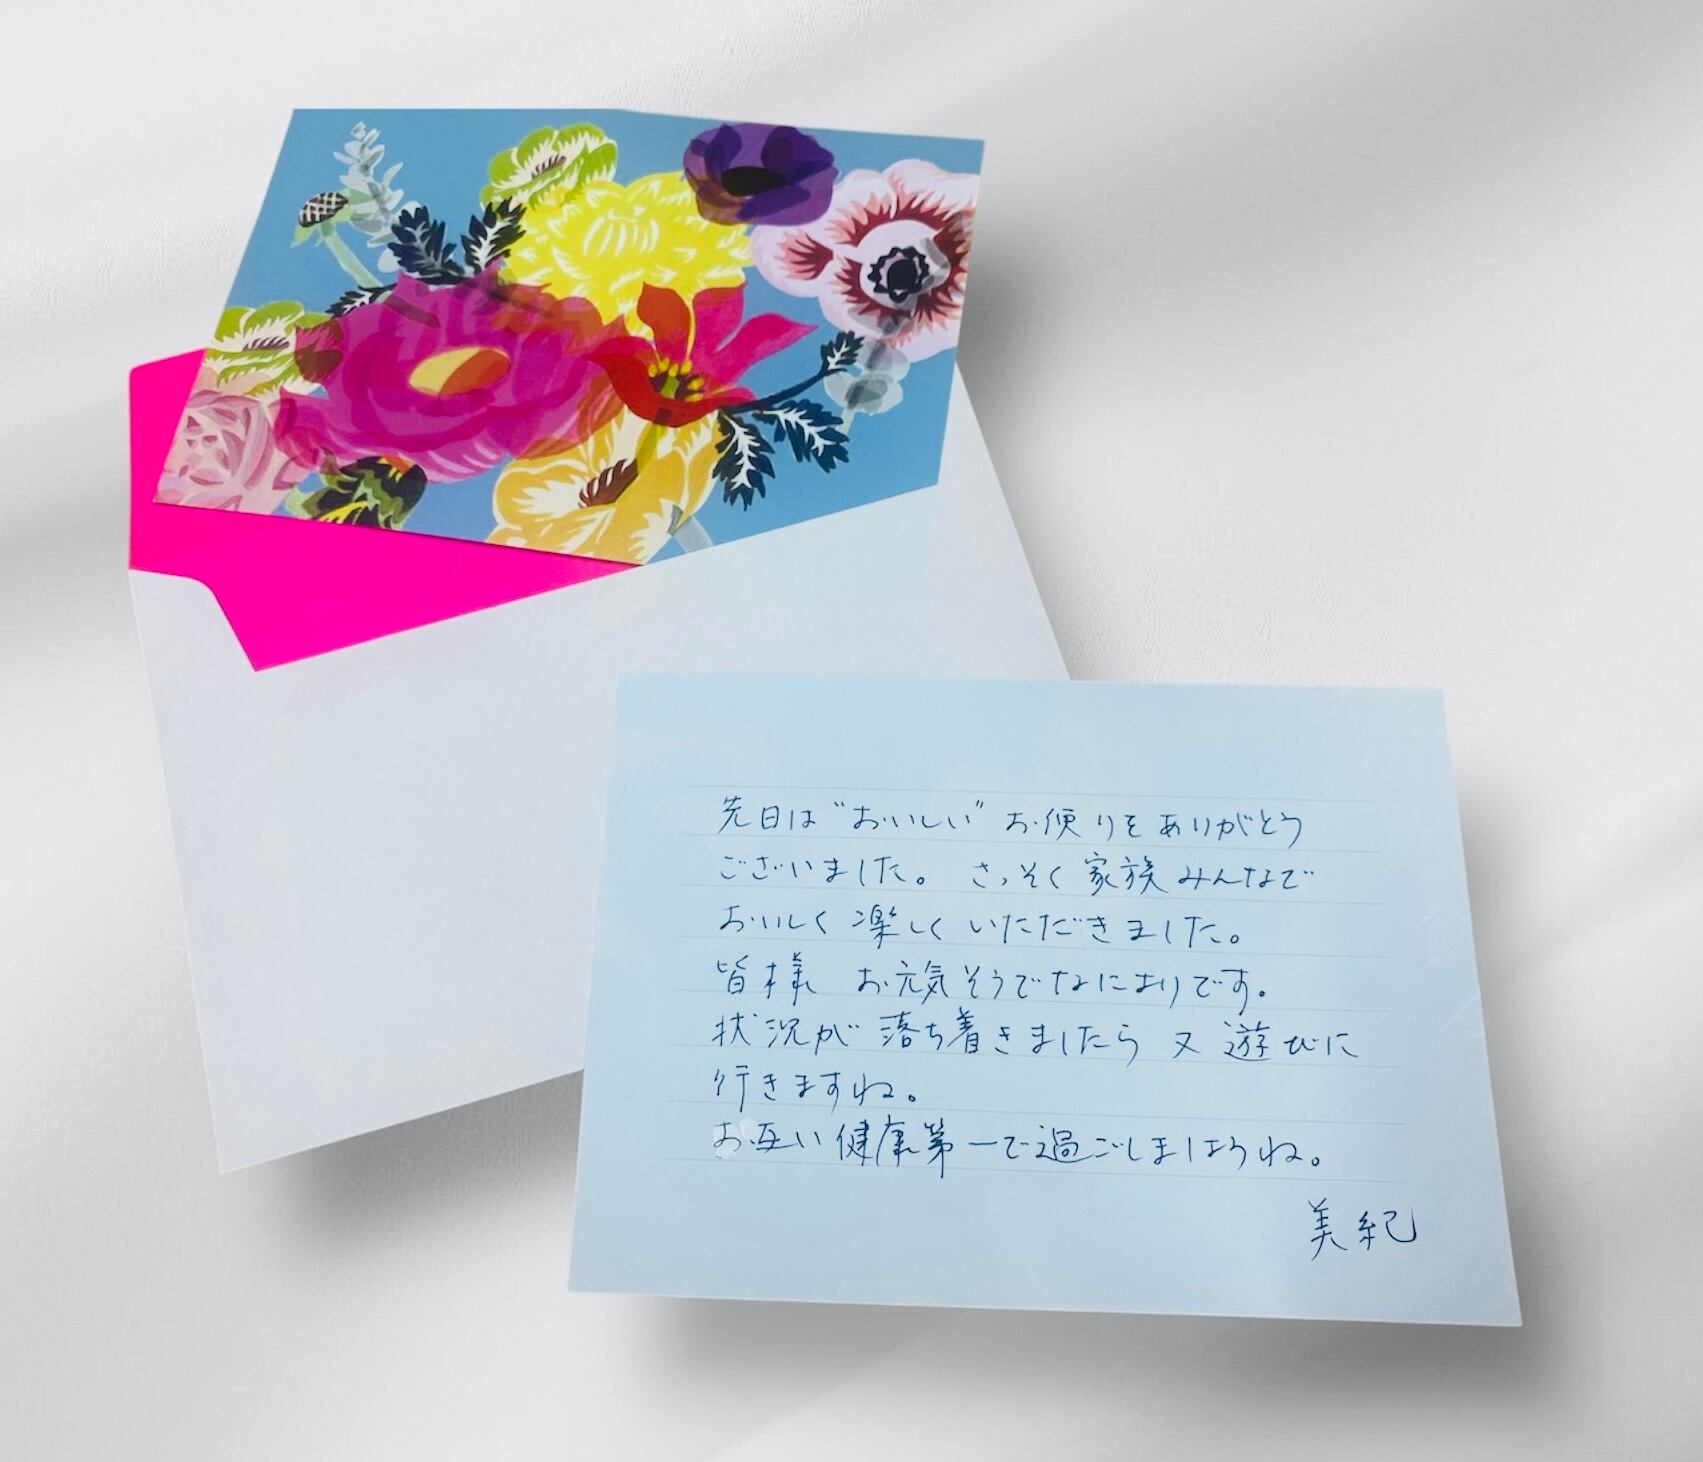 先日は“おいしい”お便りをありがとう
ございました。 さっそく家族みんなで
おいしく楽しくいただきました。
皆様 お元気そうでなによりです。
状況が落ち着きましたら又遊びに
行きますね。
お互い健康第一で過ごしましょうね。
美紀